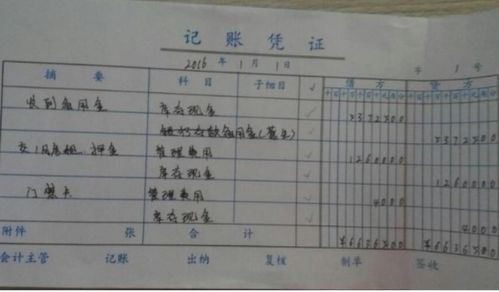 记账凭证
2016 年 1 月 1 字 1 号
摘要 科目 子细目 √ 借方 贷方
收到备用金 库存现金 √ 5372500
备用金 √ 5372500
交1月房租、押金 管理费用 √ 1260000
库存现金 √ 1260000
门禁卡 管理费用 √ 4000
库存现金 √ 4000
附件 张 合计 ¥6636500 ¥6636500
会计主管 记账 出纳 复核 制单 签收